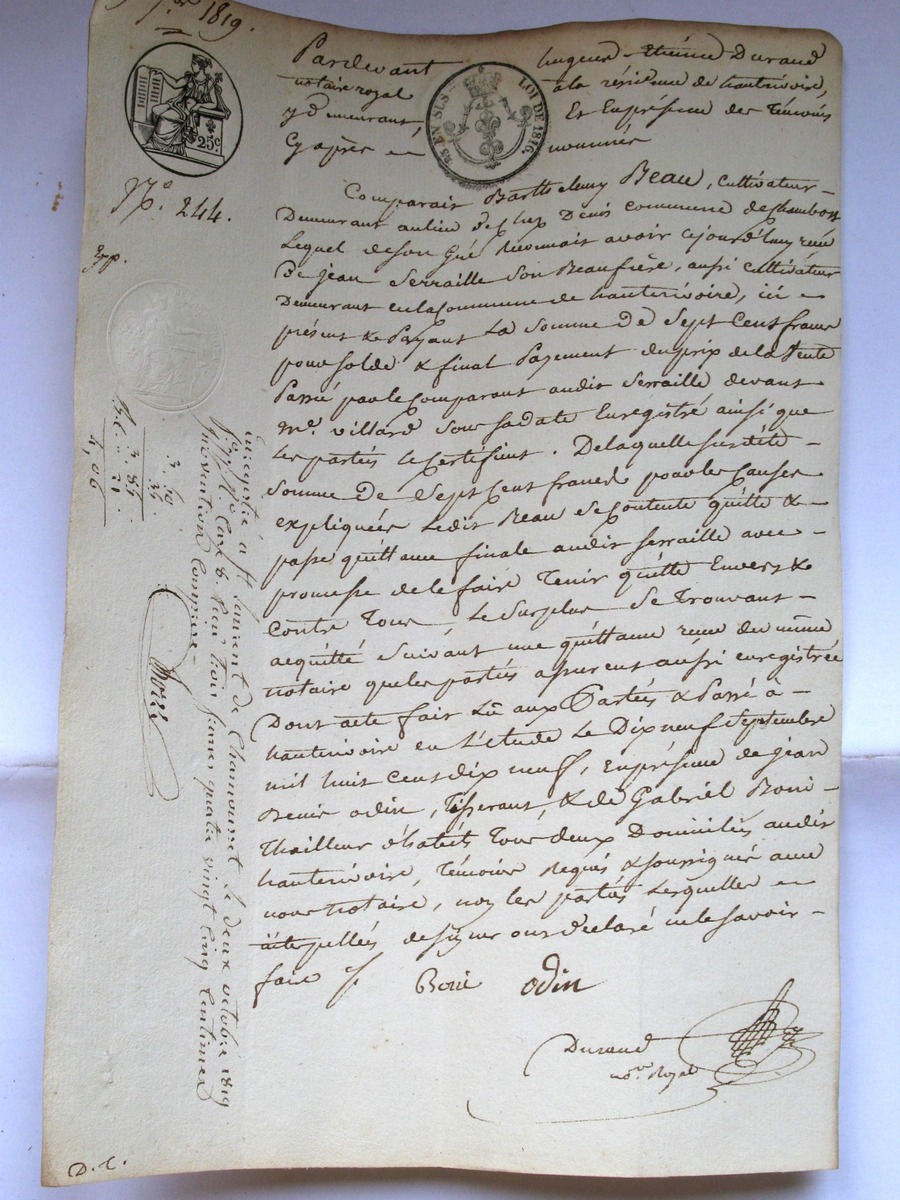 7.bre 1819.
25c.
EN SUS
LOI DE 1816.
N.o 244.
Exp.
Pardevant hugues Etienne Durand
notaire royal à la résidence de hauterivoire,
y demeurant, Et En présence des Témoins
Cy après en nommés
Comparait Barthelemy Beau, Cultivateur
Demeurant au lieu de Chez Denis commune de Chambost
Lequel de son Gré Reconnait avoir cejourd'huy reçu
De jean Serraille Son Beaufrère, aussi Cultivateur
Demeurant en la Commune de hauterivoire, ici
présent & Payant La Somme De Sept Cent francs
pour solde & final Payement du prix de la Vente
Passée par le Comparant audit Serraille devant
Me. villard Sous sa date Enregistré ainsi que
les parties le Certifient. De laquelle susdite
Somme De Sept Cent francs pour les Causes
expliquées Ledit Beau se Contente quitte &
passe quittance finale audit Serraille avec
promesse de le faire Tenir quitte Envers &
Contre Tous, Le Surplus Se Trouvant
acquitté Suivant une quittance reçue du même
notaire que les parties assurent aussi enregistrée
Dont acte fait Lû aux Parties & Passé à
hauterivoire en L'étude Le Dix neuf Septembre
mil huit Cent dix neuf, En présence de jean
Denis odin, Tisserant, & de Gabriel Boni
Thailleur d'habits Tous deux Domiciliés audit
hauterivoire, Témoins Requis & soussignés avec
nous notaire, non les parties Lesquelles
interpellées de signer ont déclaré ne le savoir
faire
odin
Durand
no.re Royal
Enregistré à St Laurent de Chamousset le deux octobre 1819
Reçu trois francs quatre vingt cinq Centimes
3. 85
4, 06
D. C.